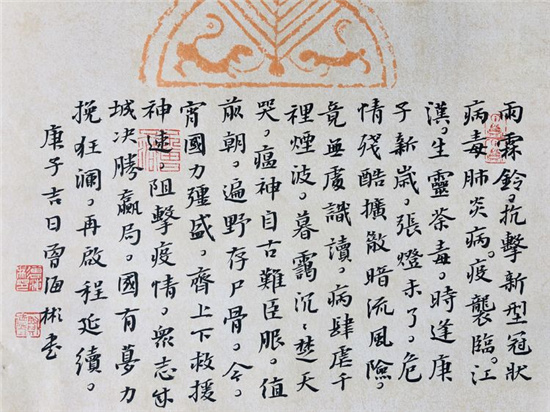 雨霖鈴。抗擊新型冠狀
病毒肺炎病。疫襲臨。江
漢。生靈荼毒。時逢庚
子新歲。張燈未了。危
情殘酷擴散暗流風險。
竟無處識讀。病肆虐千
裡煙波。暮靄沉〻楚天
哭。瘟神自古難臣服。值
前朝。遍野存尸骨。今
宵國力彊盛。齊上下救援
神速。阻擊疫情。眾志成
城决勝贏局。國有夢力
挽狂瀾。再啟程延續。
庚子吉日曾海彬书